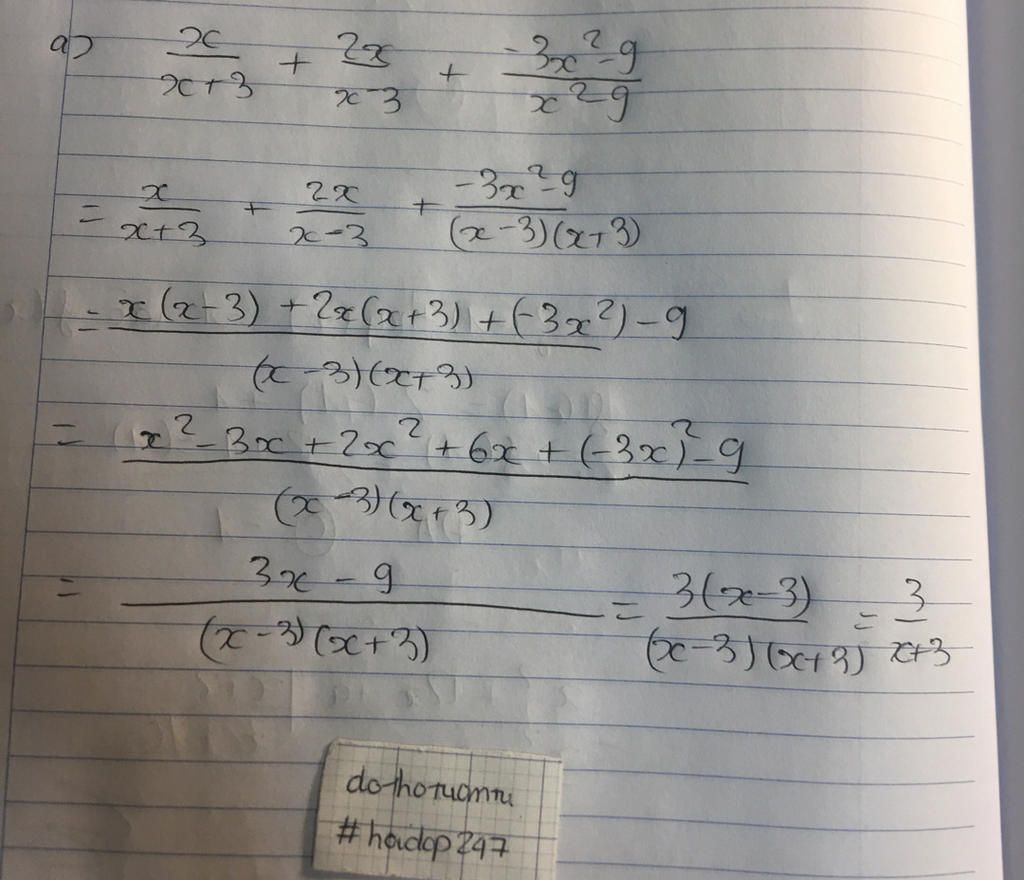 a) x/(x+3) + 2x/(x-3) + (-3x²-9)/(x²-9)
= x/(x+3) + 2x/(x-3) + (-3x²-9)/((x-3)(x+3))
= (x(x-3) + 2x(x+3) + (-3x²) - 9)/((x-3)(x+3))
= (x² - 3x + 2x² + 6x + (-3x)² - 9)/((x-3)(x+3))
= (3x - 9)/((x-3)(x+3)) = 3(x-3)/((x-3)(x+3)) = 3/(x+3)
#hoidap247